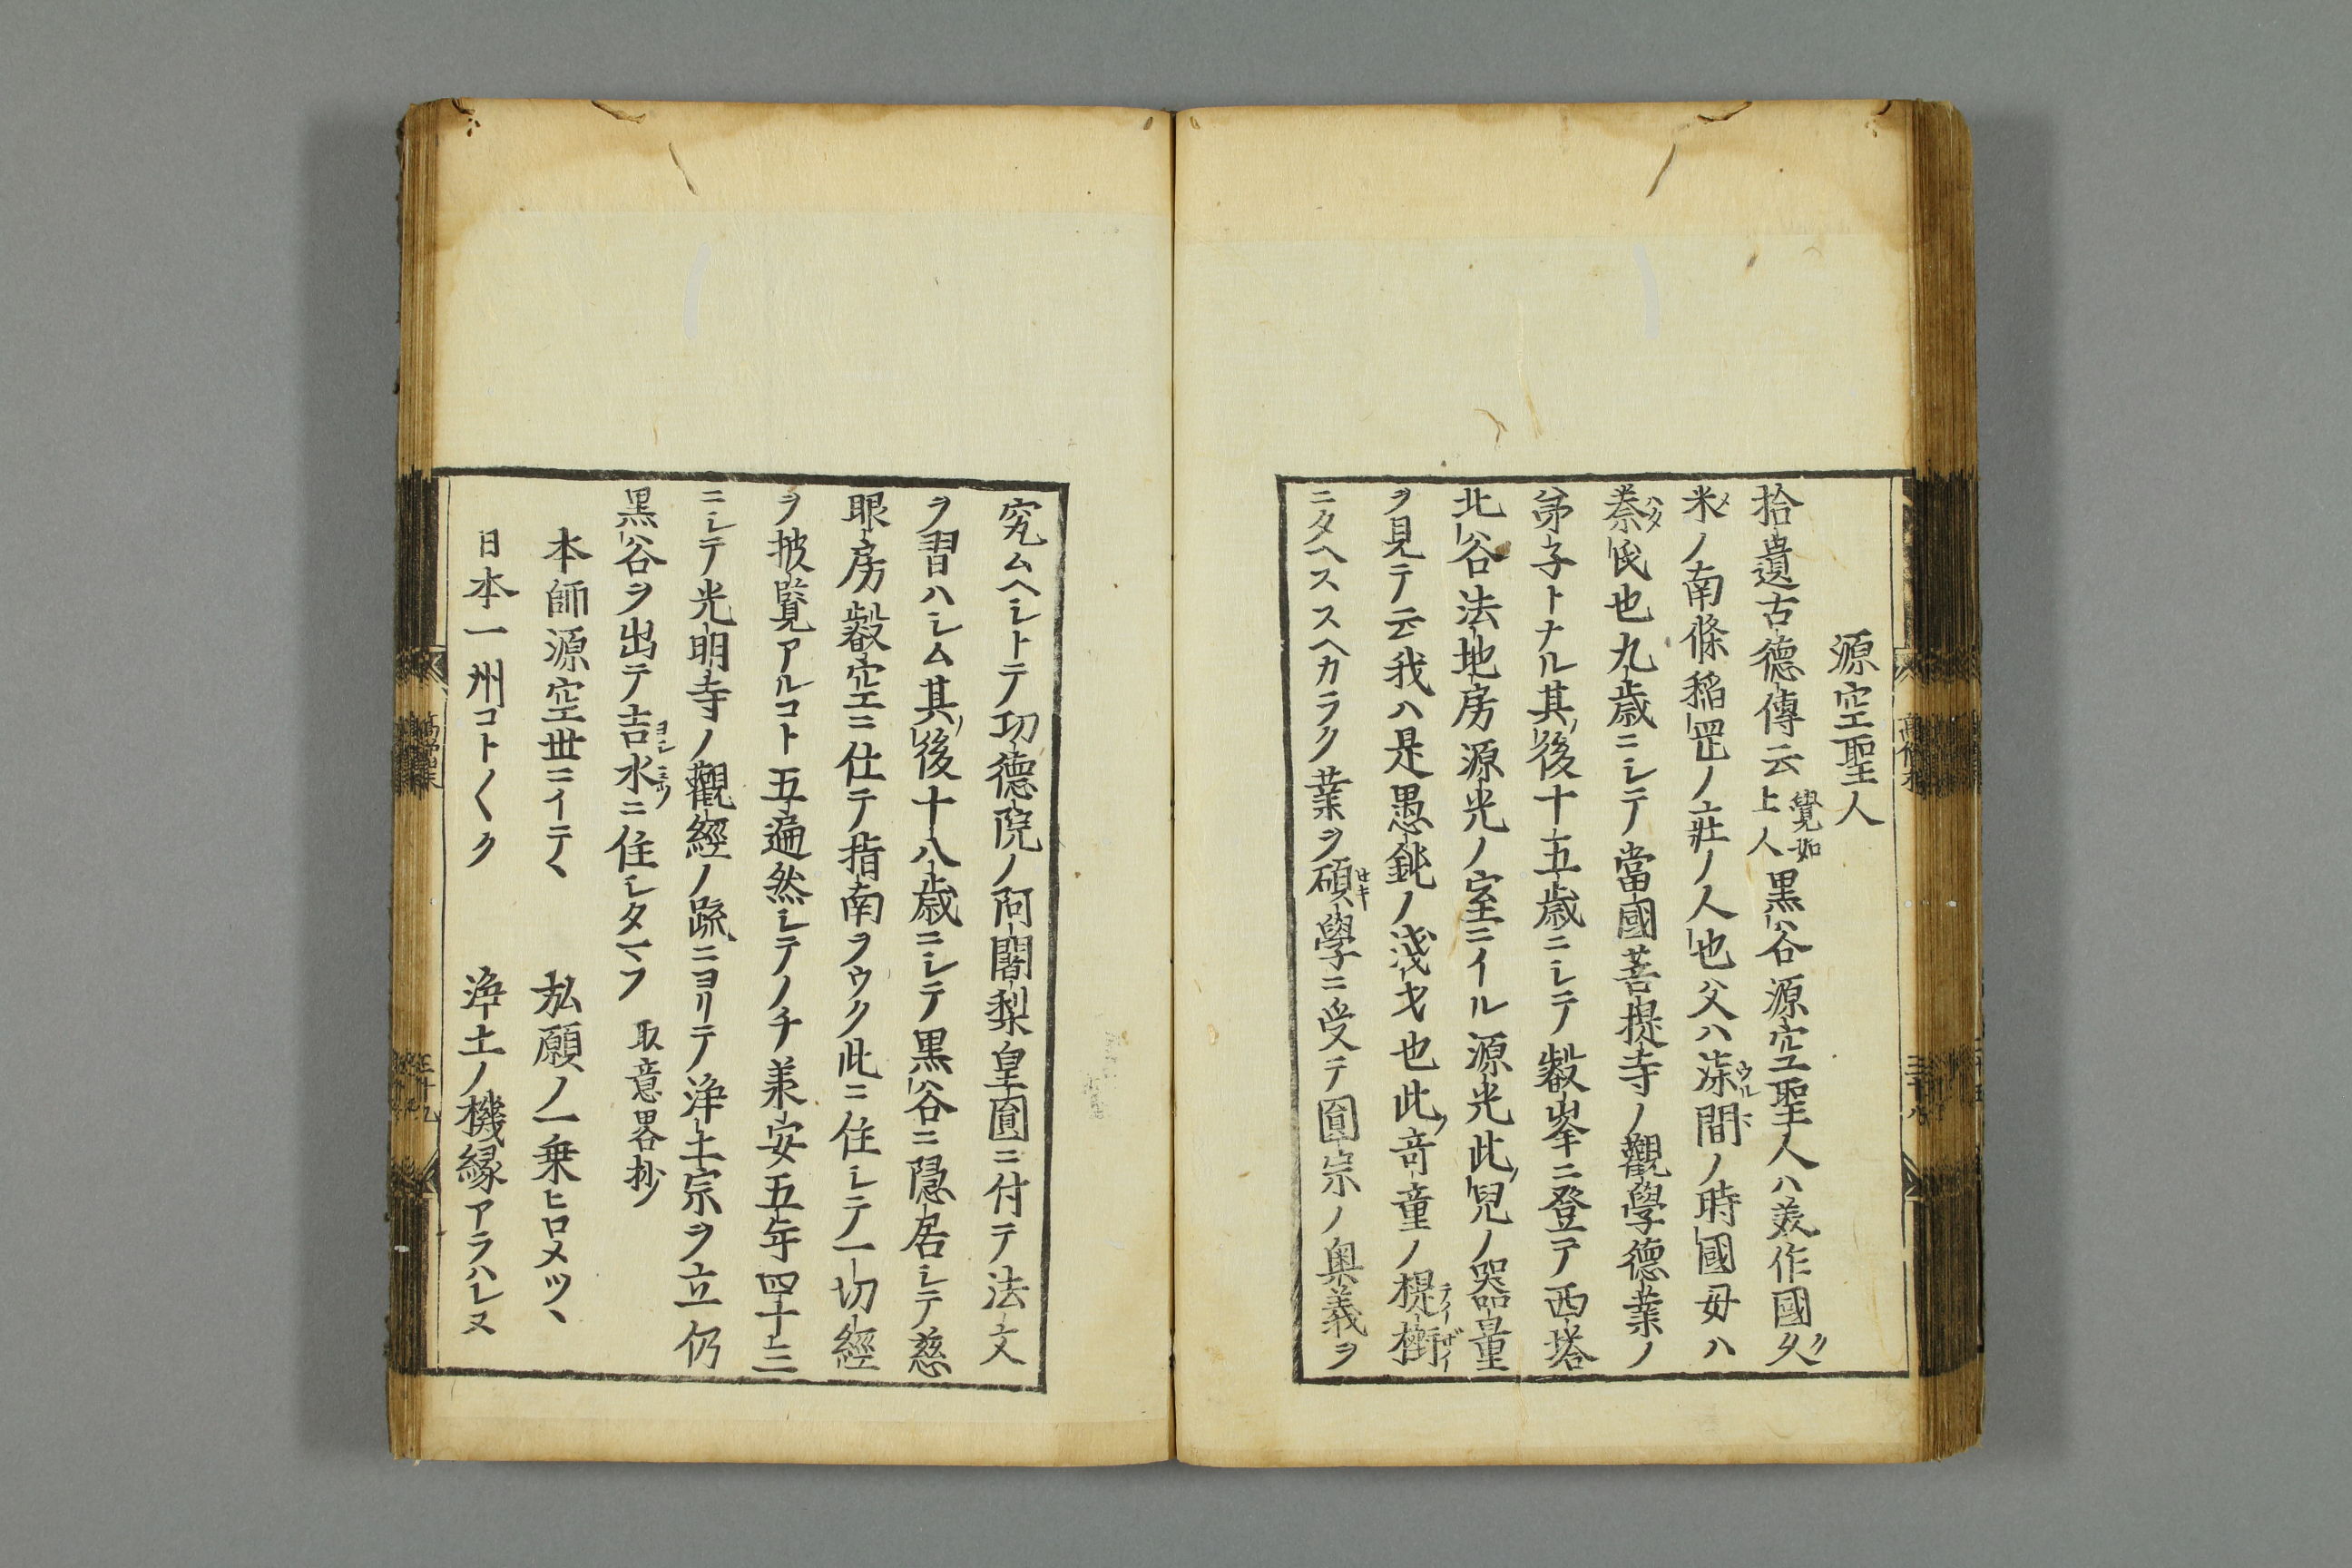 源空聖人
拾遺古德傳云覺如上人黒谷源空聖人ハ美作國久
米ノ南條稲岡ノ庄ノ人也父ハ漆間ノ時國毋ハ
秦氏也九歳ニシテ當國菩提寺ノ觀學德業ノ
弟子トナル其後十五歳ニシテ叡峯ニ登テ西塔
北谷法地房源光ノ室ニイル源光此兒ノ器量
ヲ見テ云我ハ是愚鈍ノ淺才也此奇童ノ提撕
ニタヘススヘカラク業ヲ碩學ニ受テ圓宗ノ奥義ヲ
究ムヘシトテ功德院ノ阿闍梨皇圓ニ付テ法文
ヲ習ハシム其後十八歳ニシテ黒谷ニ隠居シテ慈
眼房叡空ニ仕テ指南ヲウク此ニ住シテ一切經
ヲ披覧アルコト五遍然シテノチ兼安五年四十三
ニシテ光明寺ノ觀經ノ疏ニヨリテ浄土宗ヲ立仍
黒谷ヲ出テ吉水ニ住シタマフ 取意畧抄
本師源空世ニイテヽ 弘願ノ一乗ヒロメツヽ
日本一州コト〱ク 浄土ノ機縁アラハレヌ